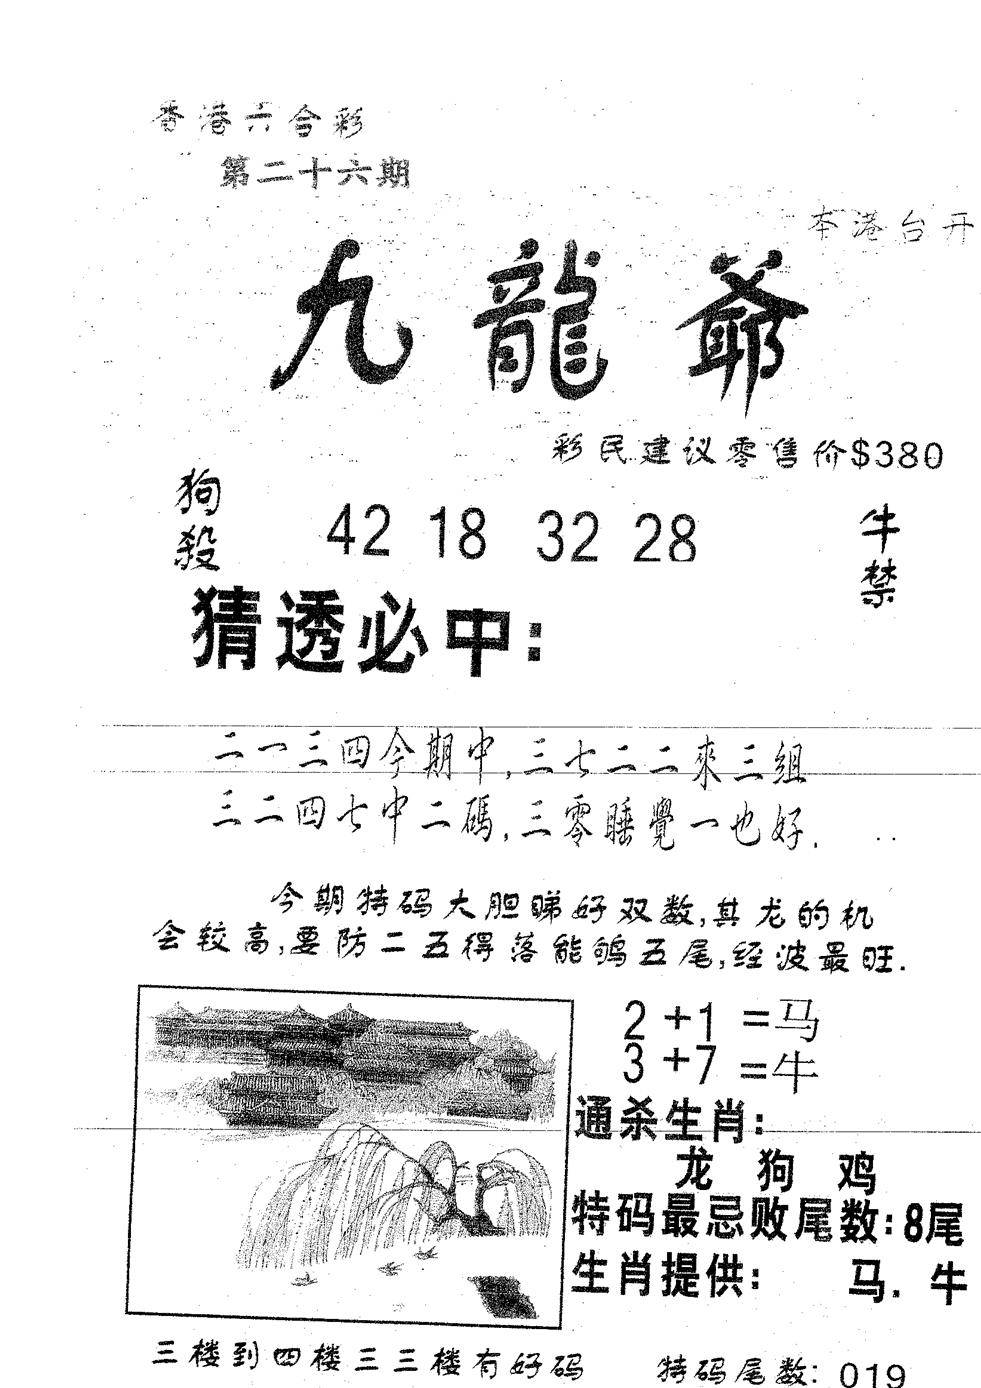 香港六合彩
第二十六期
本港台开
九龍爺
彩民建议零售价$380
狗殺
42 18 32 28
牛禁
猜透必中:
二一三四今期中,三七二二來三組
三二四七中二碼,三零睡覺一也好.
今期特码大胆睇好双数,其龙的机
会较高,要防二五得落能鸲五尾,经波最旺.
2+1=马
3+7=牛
通杀生肖:
龙 狗 鸡
特码最忌败尾数:8尾
生肖提供: 马. 牛
三楼到四楼三三楼有好码
特码尾数: 019